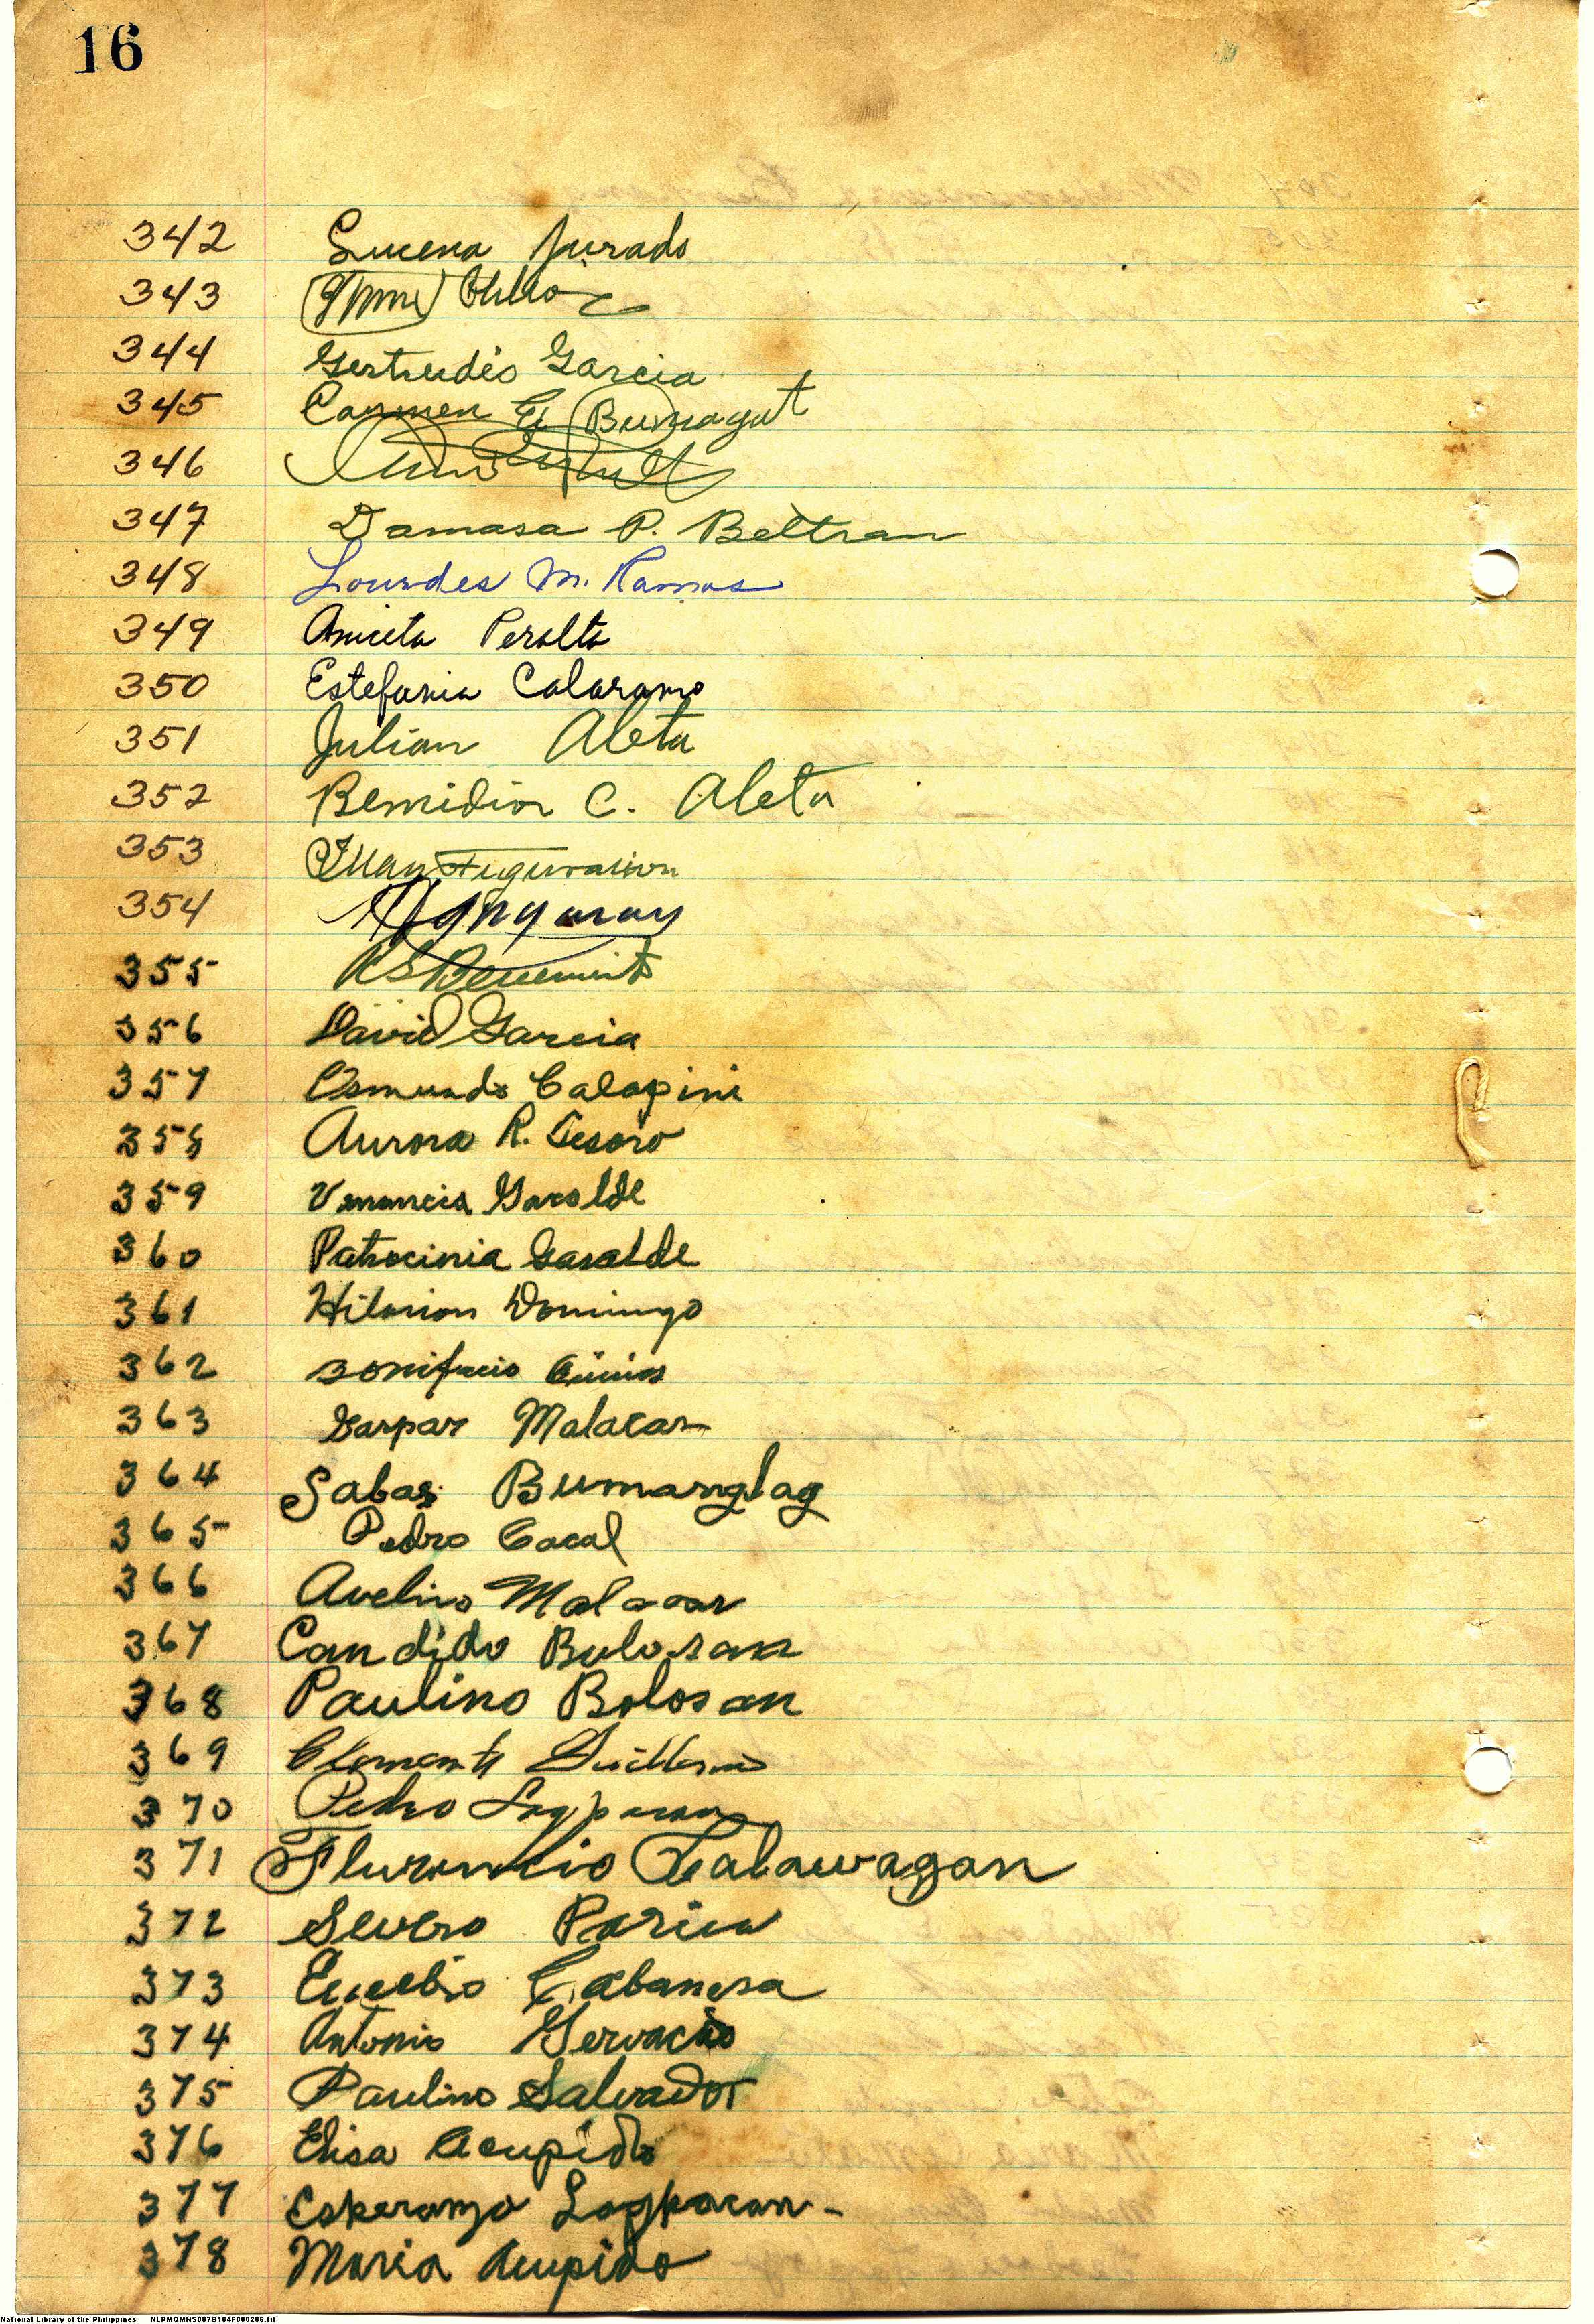 16
342 Lucena Jurado
343
344 Gertrudes Garcia
345 Carmen G. Bumagat
346
347 Damasa P. Beltran
348 Lourdes M. Ramos
349 Aniceta Peralta
350 Estefania Calaramo
351 Julian Abeta
352 Remidior C. Aleta
353 Juan Figuracion
354
355
356 David Garcia
357 Osmundo Calapini
358 Aurora R. Tesoro
359 Venancia Garalde
360 Patrocinia Garalde
361 Hilarion Domingo
362 Bonifacio
363 Gaspar Malacas
364 Sabas Bumanglag
365 Pedro Cacal
366 Avelino Malacas
367 Candido Bulosan
368 Paulino Bolosan
369 Clemente Guillermo
370 Pedro Lagpacan
371 Flurencio Talawagan
372 Severo
373 Eusebio Cabanesa
374 Antonio Gervacio
375 Paulino Salvador
376 Elisa Acupido
377 Esperanza Lagpacan -
378 Maria Acupido
National Library of the Philippines NLPMQMNS007B104F000206.tif